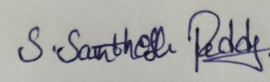 S. Santhosh Reddy.